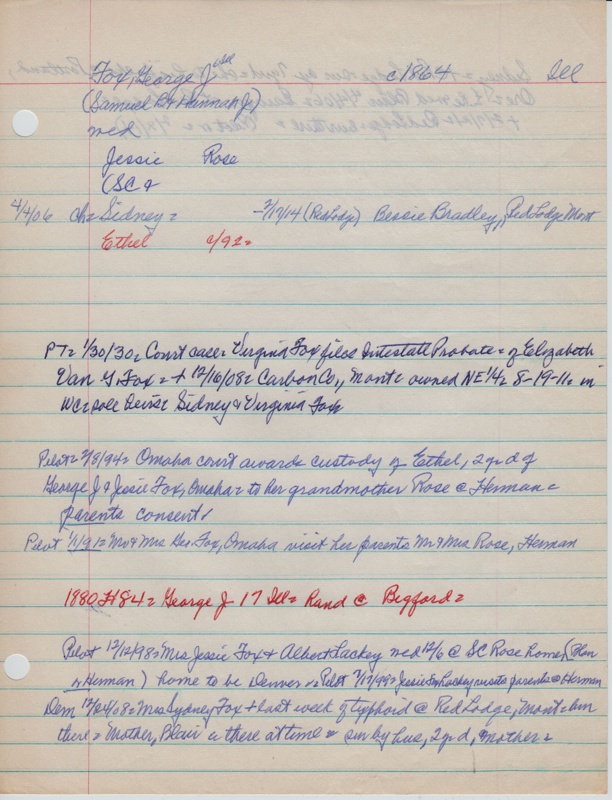 Fox, George J c1864 Ill
(Samuel B & Hannah J)
wed
Jessie Rose
(SC &
4/4/06 ch= Sidney = (Red Lodge) Bessie Bradley, Red Lodge Mont
Ethel c/92=
PT= 1/30/30= Court case= Virginia Fox files Intestate Probate = of Elizabeth
Van G. Fox = + 12/16/08= Carbon Co., Mont= owned NE 1/4= 8-19-11= in
WC= sole Devise Sidney & Virginia Fox
Pilot= 2/8/94= Omaha court awards custody of Ethel, 2 y d of
George J & Jessie Fox, Omaha= to her grandmother Rose @ Herman=
parents consent
Pilot 1/1/91= Mr & Mrs Geo Fox, Omaha visit her parents Mr & Mrs Rose, Herman
1880 #84= George J 17 Ill= Rand @ Bigford=
Pilot 12/12/98= Mrs Jessie Fox & Albert Lackey wed 12/6 @ SC Rose home,
Herman) home to be Denver = Pilot Jessie Fox Lackey visits parents @ Herman
Dem 12/24/08= Mrs Sydney Fox + last week of typhoid @ Red Lodge, Mont= bur
there = Mother, Blair is there at time = sur by hus, 2 y d, mother =